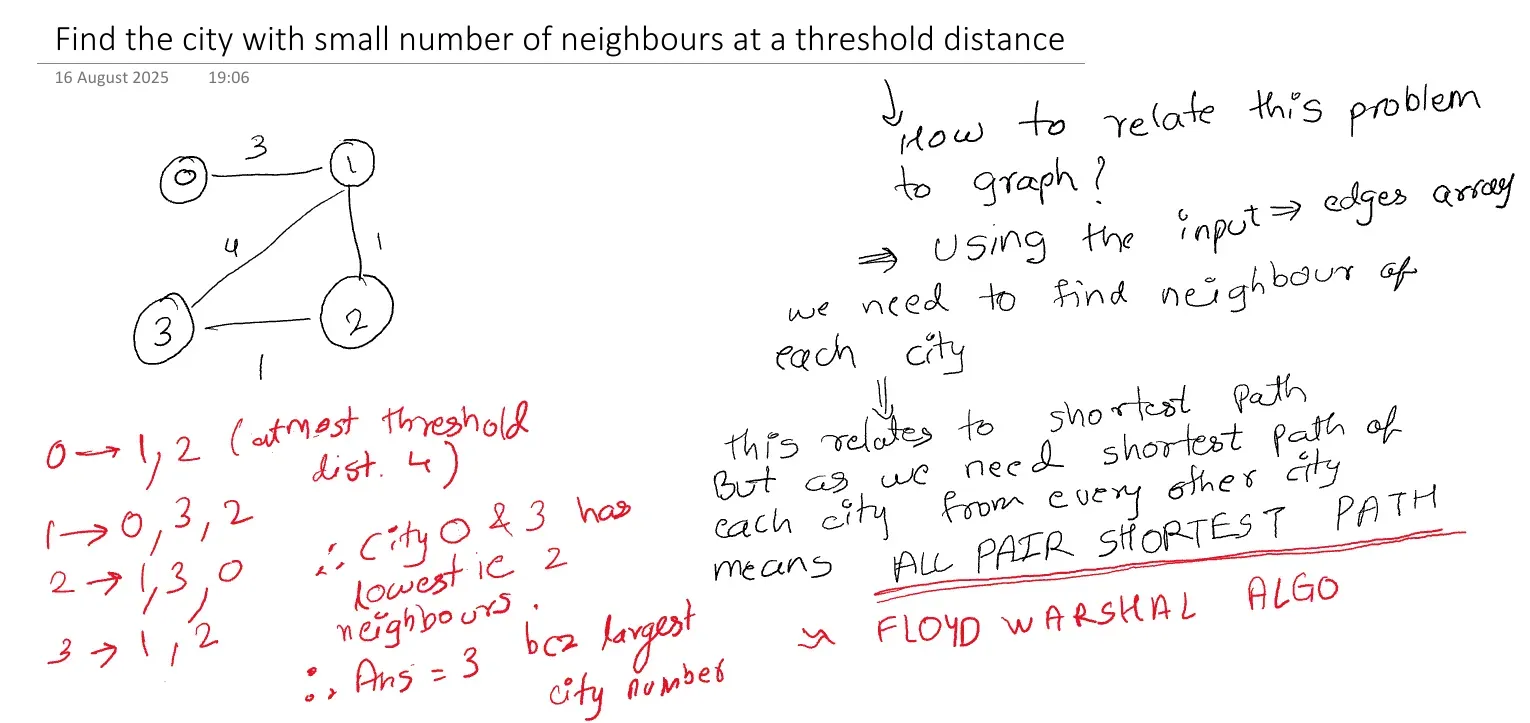 Find the city with small number of neighbours at a threshold distance
16 August 2025 19:06
0 3 1
4 1
3 2
1
0 → 1, 2 (atmost threshold
dist. 4)
1 → 0, 3, 2
2 → 1, 3, 0
3 → 1, 2
∴ City 0 & 3 has
lowest ie 2
neighbours.
∴ Ans = 3 bcz largest
city number
↓ How to relate this problem
to graph?
⇒ Using the input ⇒ edges array
we need to find neighbour of
each city
⇓
this relates to shortest path
But as we need shortest path of
each city from every other city
means ALL PAIR SHORTEST PATH
FLOYD WARSHAL ALGO